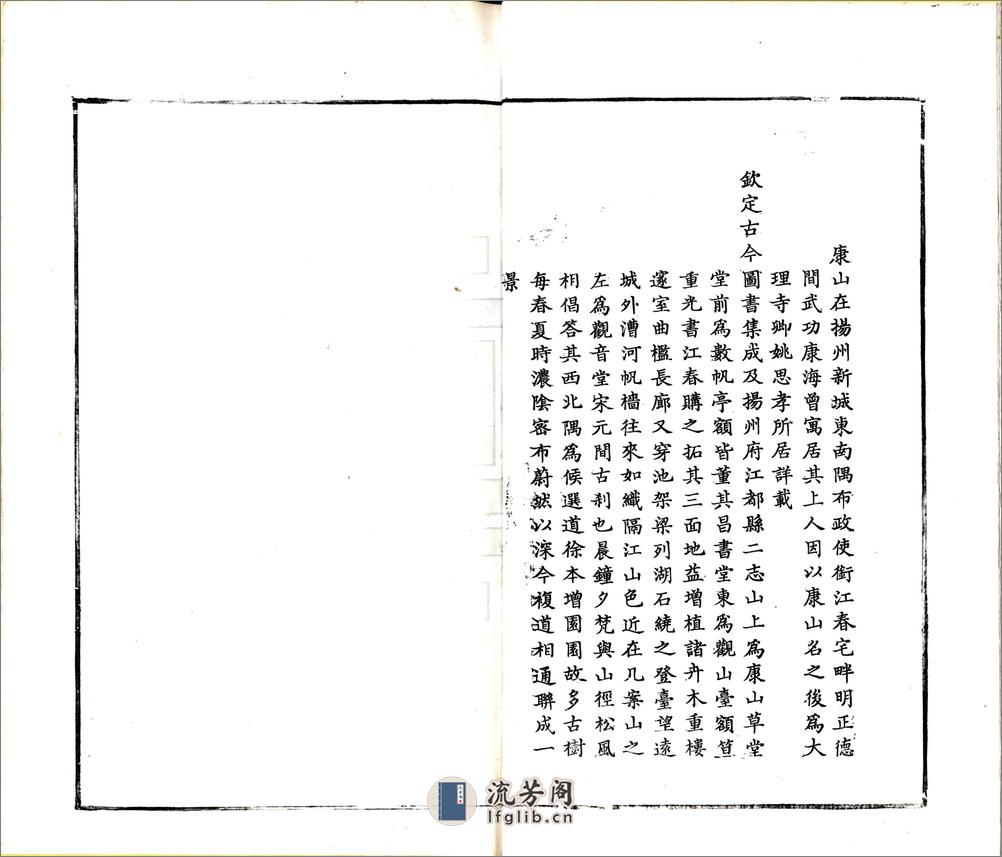 康山在揚州新城東南隅布政使銜江春宅畔明正德
間武功康海曾寓居其上人因以康山名之後爲大
理寺卿姚思孝所居詳載
欽定古今圖書集成及揚州府江都縣二志山上爲康山草堂
堂前爲數帆亭額皆董其昌書堂東爲觀山臺額笪
重光書江春購之拓其三面地益增植諸卉木重樓
邃室曲檻長廊又穿池架梁列湖石繞之登臺望遠
城外漕河帆檣往來如織隔江山色近在几案山之
左爲觀音堂宋元間古刹也晨鐘夕梵與山徑松風
相倡答其西北隅爲候選道徐本增園園故多古樹
每春夏時濃陰密布蔚然以深今複道相通聯成一
景
流芳阁
lfglib.cn